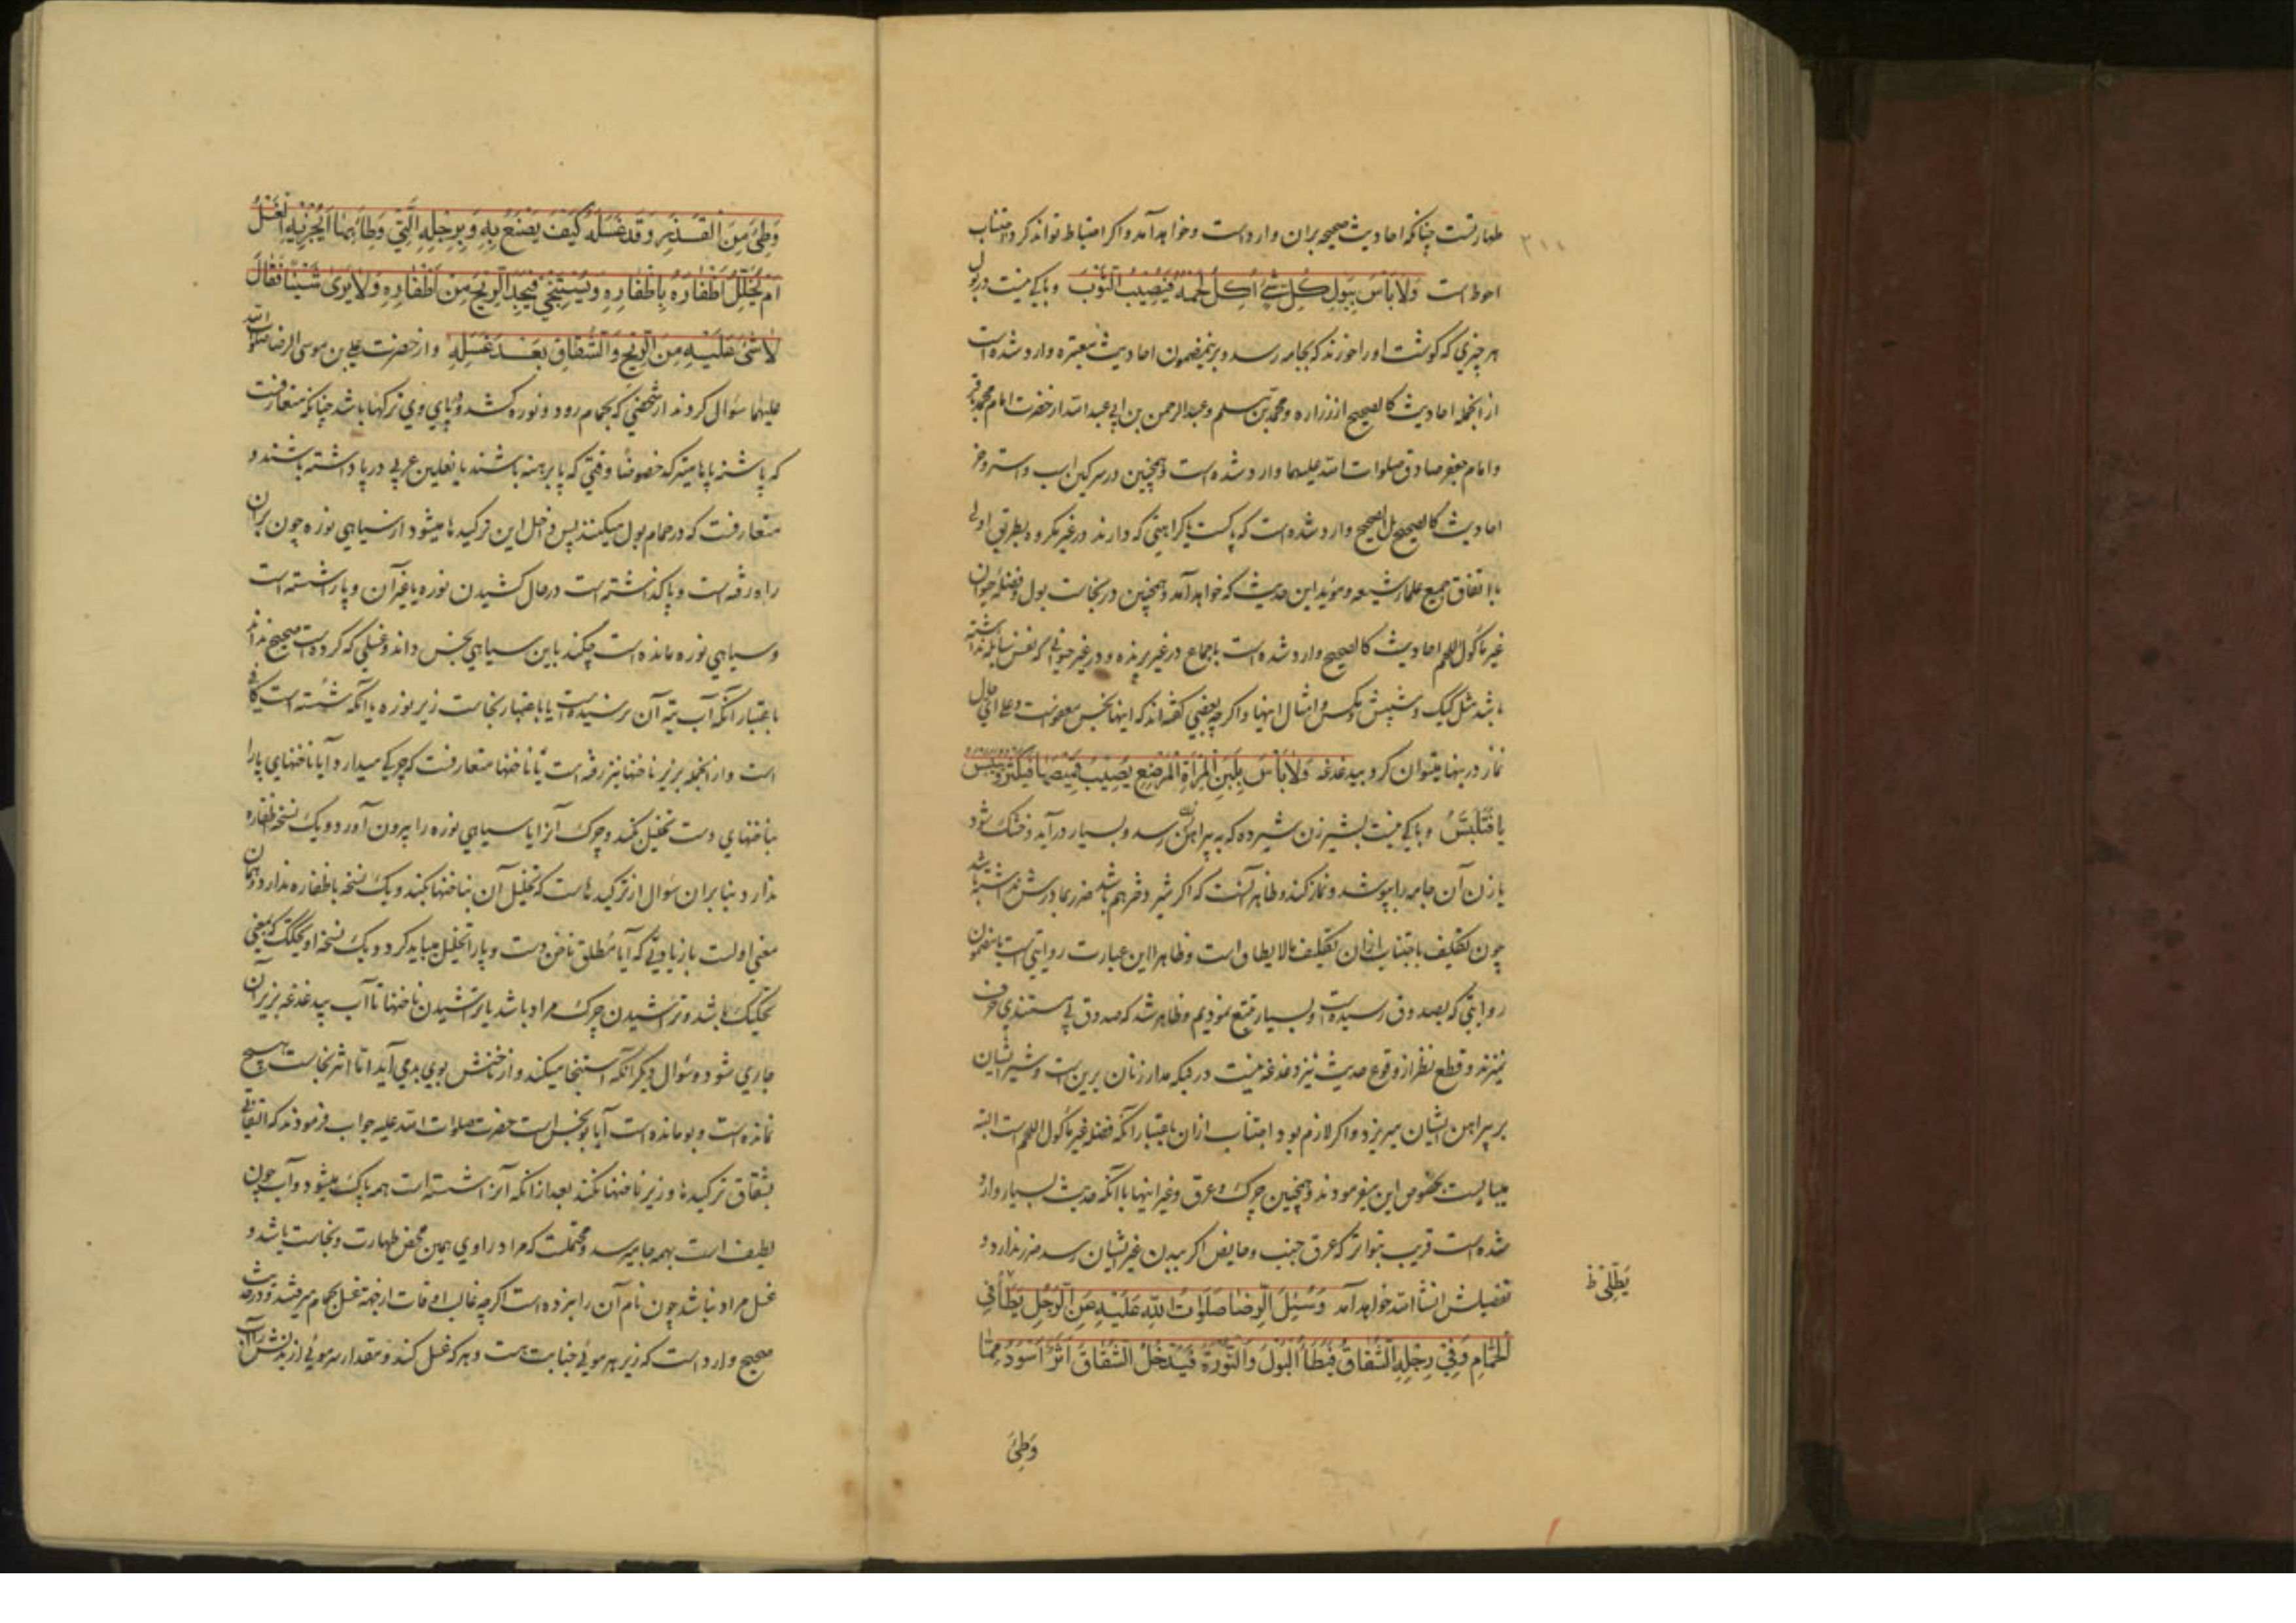 طهارتست چنانکه احادیث صحیحه بران وارد است و خواهد آمد و اکر احتیاط تواند کرد و اجتناب
احوط است وَلَا بَأْسَ بِبَوْلِ كُلِّ شَيْءٍ أُكِلَ لَحْمُهُ فَيُصِيبُ الثَّوْبَ و باکی نیست در بول
هر چیزی که کوشت او را خورند که بجامه رسد و برینمضمون احادیث معتبره وارد شده است
از انجمله احادیث کالصحیح از زراره و محمد بن مسلم و عبد الرحمن بن ابی عبد الله از حضرت امام محمد باقر
و امام جعفر صادق صلوات الله علیهما وارد شده است و همچنین در سرکین اسب و استر و خر
احادیث کالصحیح بل الصحیح وارد شده است که پاکست با کراهتی که دارند در غیر مکروه بطریق اولی
با اتفاق جمیع علمای شیعه و مؤید این حدیث که خواهد آمد و همچنین در نجاست بول و فضلهٔ حیوان
غیر ماکول اللحم احادیث کالصحیح وارد شده است باجماع در غیر پرنده و در غیر حیوانی که نفس سایله نداشته
باشد مثل کیک و شپش و مکس و امثال اینها و اکرچه بعضی کفته‌اند که اینها نجس معفوست و علی ای حال
نماز در اینها میتوان کرد بیدغدغه وَلَا بَأْسَ بِلَبَنِ الْمَرْأَةِ الْمُرْضِعِ يُصِيبُ قَمِيصَهَا فَيَكْثُرُ وَيَيْبَسُ
یا فَتَلْبَسُ و باکی نیست بشیر زن شیرده که به پیراهن زن رسد و بسیار در آید و خشک شود
یا زن آن جامه را بپوشد و نماز کند و ظاهر آنست که اکر شیر دختر هم باشد ضرر بمادرش نداشته باشد
چون تکلیف باجتناب ازان تکلیف مالایطاق است و ظاهرا این عبارت روایتی است یا مضمون
روایتی که بصدوق رسیده است و بسیار تتبع نمودیم و ظاهر شد که صدوق بی مستندی حرف
نمیزند و قطع نظر از وقوع حدیث نیز دغدغه نیست در اینکه مدار زنان برین است و شیر ایشان
بر پیراهن ایشان میریزد و اکر لازم بود اجتناب ازان باعتبار آنکه فضلهٔ غیر ماکول اللحم است البته
میبایست بخصوص این میفرمودند و همچنین چرک و عرق و غیر اینها با آنکه حدیث بسیار وارد
شده است قریب بتواتر که عرق جنب و حایض اکر ببدن غیر ایشان رسد ضرر ندارد و
تفصیلش انشا الله خواهد آمد وَسُئِلَ الرِّضَا صَلَوَاتُ اللَّهِ عَلَيْهِ عَنِ الرَّجُلِ يَطَأُ فِي
الْحَمَّامِ وَفِي رِجْلِهِ الشُّقَاقُ فَيَطَأُ الْبَوْلَ وَالنُّورَةَ فَيَدْخُلُ الشُّقَاقَ أَثَرٌ أَسْوَدُ مِمَّا
يَطَّلِي ظ
وَطِئَ
وَطِئَ مِنَ الْقَذَرِ وَقَدْ غَسَلَهُ كَيْفَ يَصْنَعُ بِهِ وَبِرِجْلِهِ الَّتِي وَطِئَ بِهَا أَيُجْزِيهِ الْغَسْلُ
أَمْ يُخَلِّلُ أَظْفَارَهُ بِأَظْفَارِهِ وَيَسْتَنْجِي فَيَجِدُ الرِّيحَ مِنْ أَظْفَارِهِ وَلَا يَرَى شَيْئًا فَقَالَ
لَا شَيْءَ عَلَيْهِ مِنَ الرِّيحِ وَالشُّقَاقِ بَعْدَ غَسْلِهِ و از حضرت علی بن موسی الرضا صلوات الله
علیهما سؤال کردند از شخصی که بحمام رود و نوره کشد و پای وی ترکها باشد چنانکه متعارفست
که پاشنه پاها میترکد خصوصا وقتی که پا برهنه باشند یا نعلین عربی در پا داشته باشند و
متعارفست که در حمام بول میکنند پس داخل این ترکیدها میشود از سیاهی نوره چون بران
راه رفته است و پا کذاشته است در حال کشیدن نوره یا غیر آن و پا را شسته است
و سیاهی نوره مانده است چکند باین سیاهی نجس داند و غسلی که کرده است صحیح نداند
باعتبار آنکه آب بته آن نرسیده است یا باعتبار نجاست زیر نوره یا آنکه شسته است کافی
است و از انجمله بزیر ناخنها نیز رفته است یا ناخنها متعارفست که چرکی میدارد آیا ناخنهای پا را
بناخنهای دست تخلیل بکند و چرک آنرا یا سیاهی نوره را بیرون آورد و یک نسخه اظفاره
ندارد بنا بران سؤال از ترکیدهاست که تخلیل آن بناخنها بکند و یک نسخه باظفاره ندارد و همان
معنی اولست بازیادتی که آیا مطلق ناخن دست و پا را تخلیل میباید کرد و یک نسخه او یحکک که بمعنی
تحکیک باشد و تراشیدن چرک مراد باشد یا تراشیدن ناخنها تا آب بیدغدغه بزیر آن
جاری شود و سؤال دیکر آنکه استنجا میکند و از ناخنش بوی بدی آید اما اثر نجاست هیچ
نمانده است و بو مانده است آیا بو نجس است حضرت صلوات الله علیه جواب فرمودند که التفاتی
بشقاق ترکیدها و زیر ناخنها نکند بعد از انکه آنرا شسته است همه پاک میشود و آب چون
لطیف است بهمه جا میرسد و محتملست که مراد راوی همین محض طهارت و نجاست باشد و
غسل مراد نباشد چون نام آن را نبرده است اکرچه غالب اوقات از جهة غسل بحمام میرفتند و در حدیث
صحیح وارد است که زیر هر موئی جنابت هست و هر که غسل کند و مقدار سر موئی از بدنش را آب